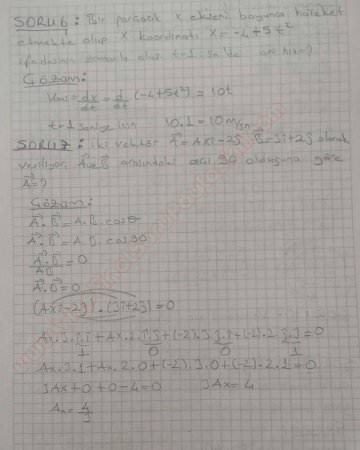 SORU 6: Bir parçacık x ekseni boyunca hareket
etmekte olup x koordinatı x = -4+5t²
ifadesine zamanla olur t=1 sn'de anı hızı?
Çözüm:
Vani = dx/dt = d/dt (-4+5t²) = 10t
t=1 saniye için 10.1 = 10 m/sn
SORU 7: iki vektör A⃗ = Axi-2j, B⃗ = 3i+2j olarak
veriliyor. A ve B arasındaki açı 90 olduğuna göre
A⃗=?
Çözüm:
A⃗.B⃗ = A.B.cosθ
A⃗.B⃗ = A.B.cos90
A⃗.B⃗/AB = 0
A⃗.B⃗ = 0
(Axi-2j).(3i+2j) = 0
Ax.3.i.i + Ax.2.i.j + (-2).3 j.i + (-2).2 j.j = 0
1 0 0 1
Ax.3.1 + Ax.2.0 + (-2).3.0 + (-2).2.1 = 0
3Ax + 0 + 0 - 4 = 0 3Ax = 4
Ax = 4/3